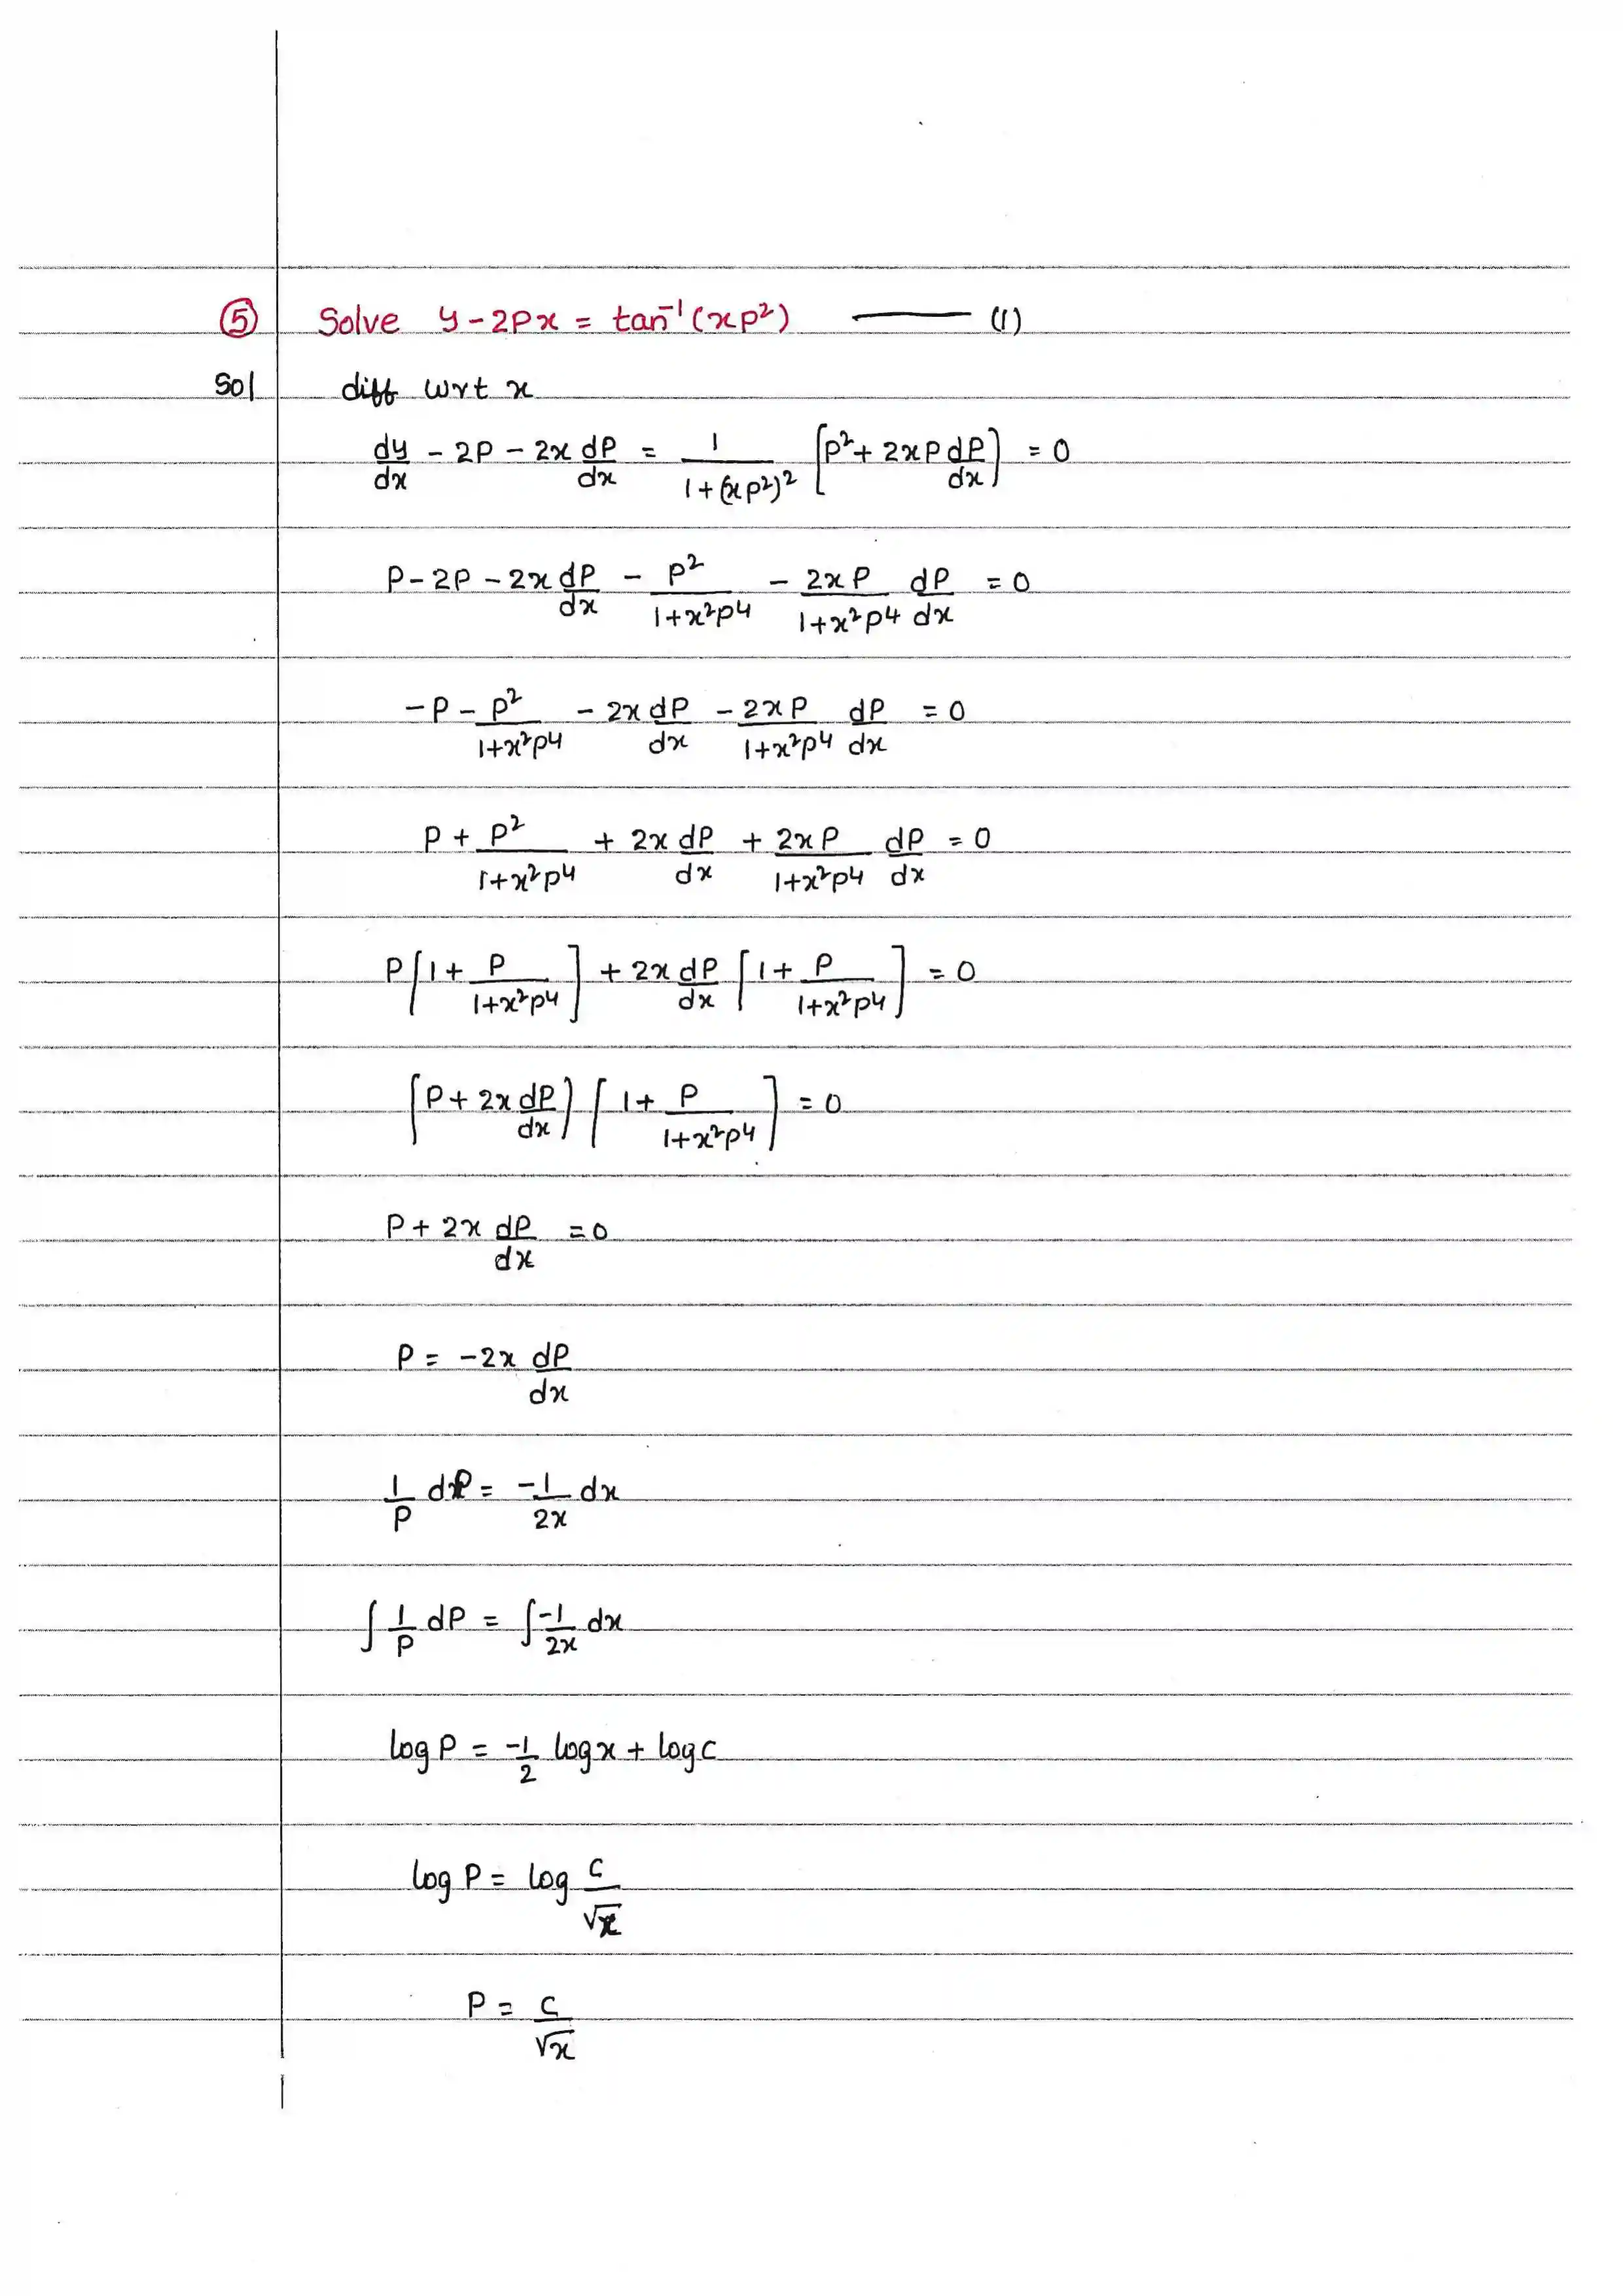 ⑤ Solve y - 2px = tan⁻¹(xp²) —— (1)
Sol diff wrt x
dy/dx - 2p - 2x dp/dx = 1/(1+(xp²)²) [p² + 2xp dp/dx] = 0
p - 2p - 2x dp/dx - p²/(1+x²p⁴) - 2xp/(1+x²p⁴) dp/dx = 0
-p - p²/(1+x²p⁴) - 2x dp/dx - 2xp/(1+x²p⁴) dp/dx = 0
p + p²/(1+x²p⁴) + 2x dp/dx + 2xp/(1+x²p⁴) dp/dx = 0
p[1 + p/(1+x²p⁴)] + 2x dp/dx [1 + p/(1+x²p⁴)] = 0
[p + 2x dp/dx] [1 + p/(1+x²p⁴)] = 0
p + 2x dp/dx = 0
p = -2x dp/dx
1/p dp = -1/2x dx
∫ 1/p dp = ∫ -1/2x dx
log p = -1/2 log x + log c
log p = log c/√x
p = c/√x